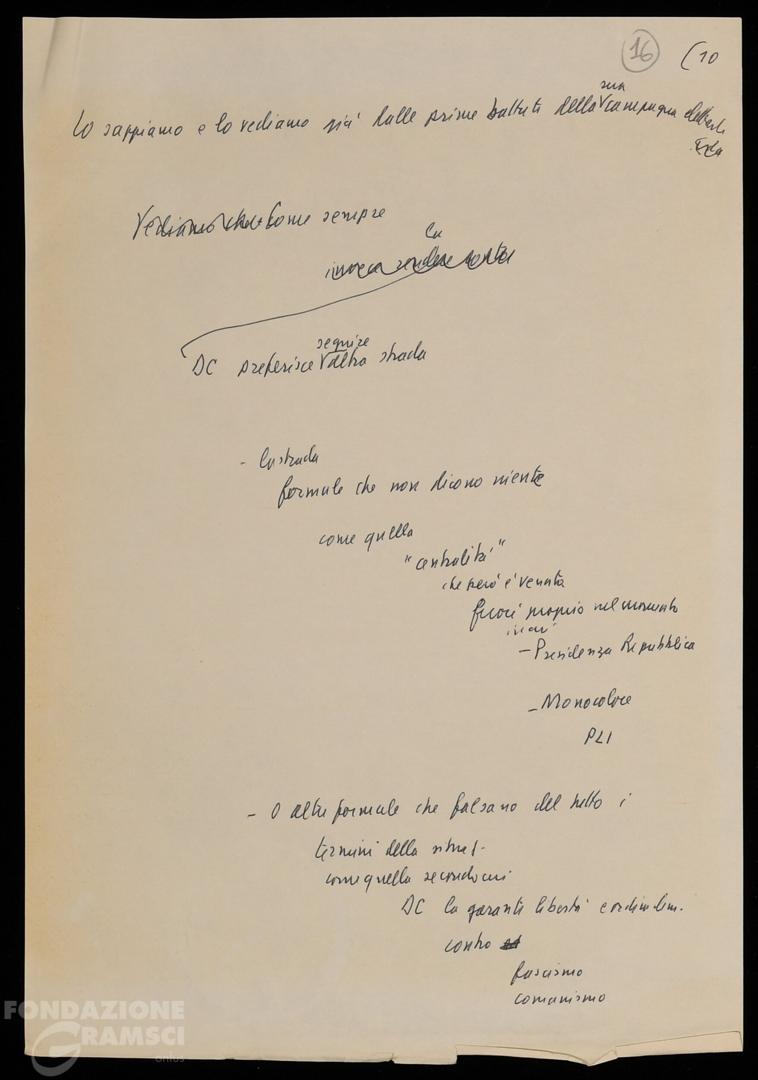 16 (10
Lo sappiamo e lo vediamo già dalle prime battute della sua campagna elettorale
Vediamo che come sempre
invece rendere conto
la
DC preferisce seguire altra strada
- La strada
formule che non dicono niente
come quella
"centralità"
che però è venuta
fuori proprio nel momento
in cui
- Presidenza Repubblica
- Monocolore
PLI
- O altre formule che falsano del tutto i
termini della situaz.
come quella secondo cui
DC la garante libertà e ordine dem.
contro
fascismo
comunismo
FONDAZIONE
GRAMSCI
onlus